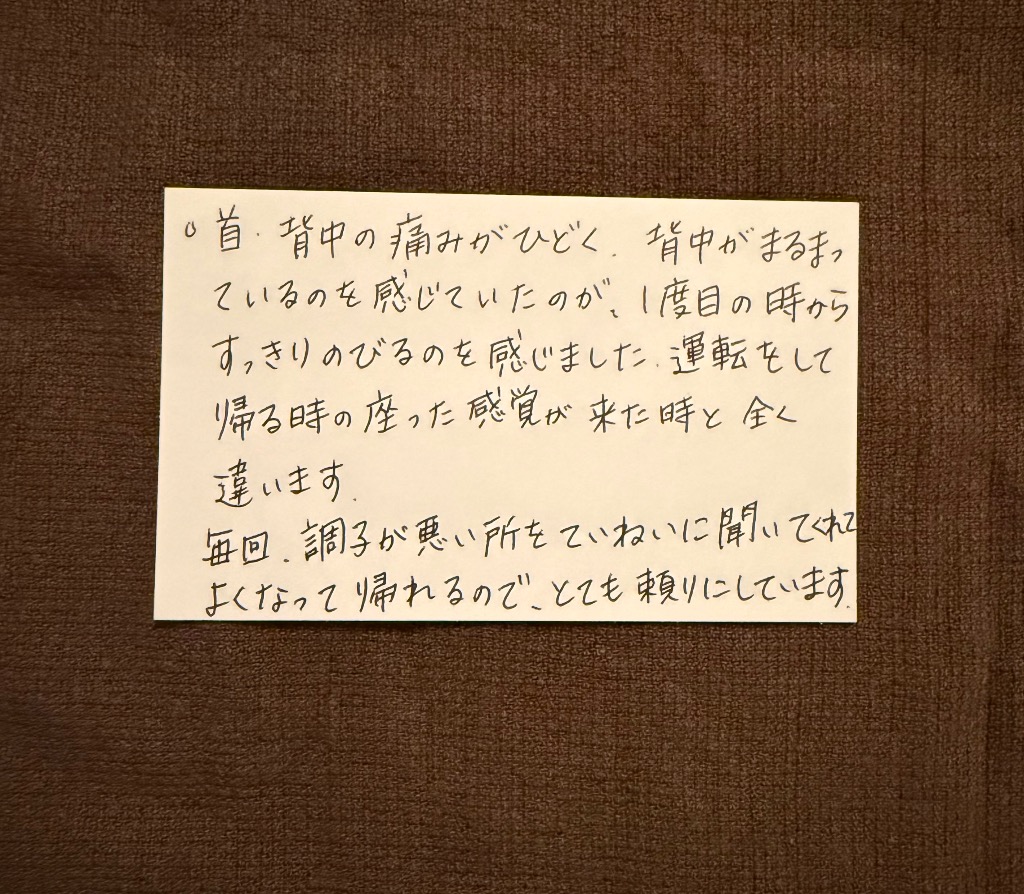 ○ 首、背中の痛みがひどく、背中がまるまっ
ているのを感じていたのが、1度目の時から
すっきりのびるのを感じました。運転をして
帰る時の座った感覚が来た時と全く
違います。
毎回、調子が悪い所をていねいに聞いてくれて
よくなって帰れるので、とても頼りにしています。